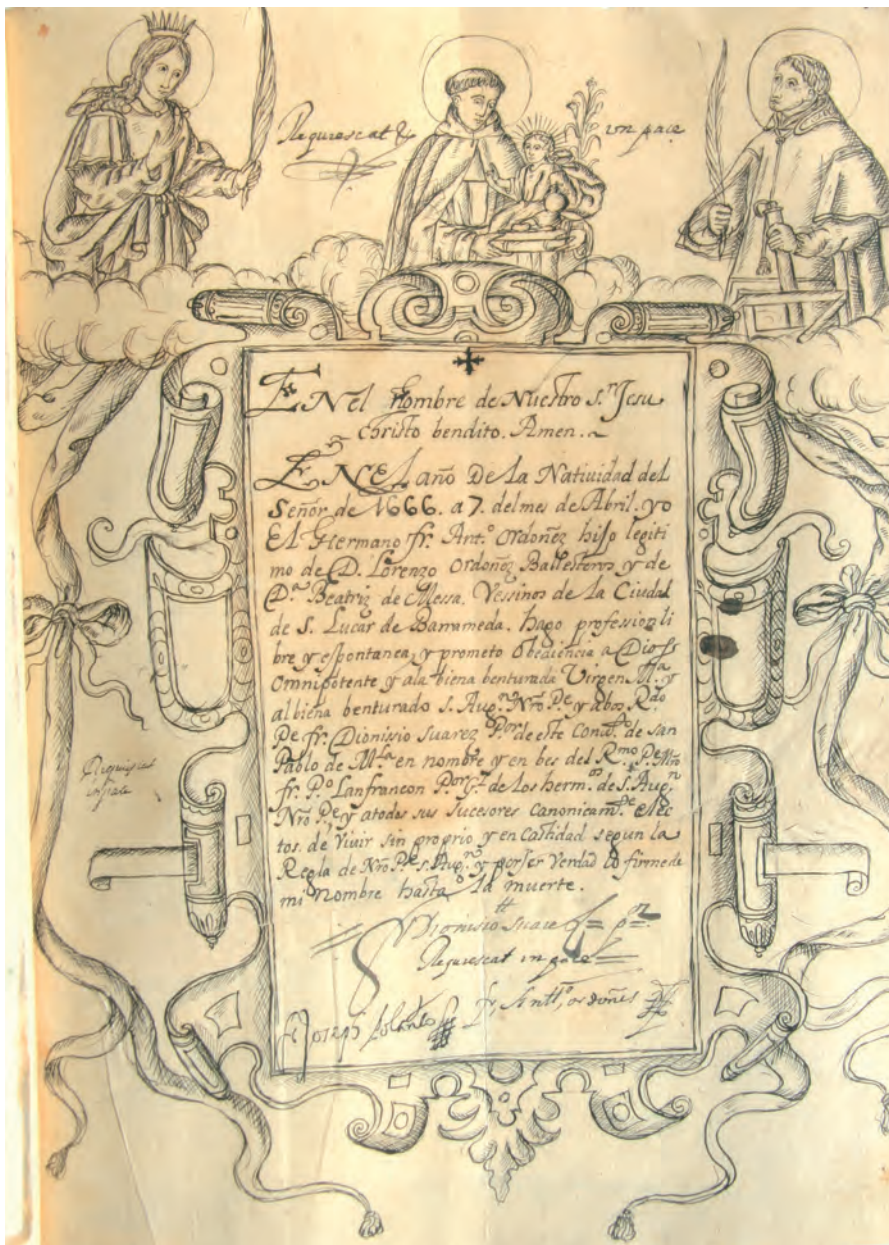 Requiescat
in pace
✠
EN el Nombre de Nuestro S.r Jesu
Christo bendito. Amen.
EN El año De la Natiuidad del
Señor de 1666. a 7. del mes de Abril. yo
El Hermano fr. Ant.o Ordoñez hijo legiti
mo de D. Lorenzo Ordoñez Ballesteros y de
D.a Beatriz de Messa. Vessinos de la Ciudad
de S. Lucar de Barrameda. hago profession li
bre y espontanea, y prometo obediencia a Dios
Omnipotente y ala biena benturada Virgen M.a y
al biena benturado s. Aug.n Nro P.e y abos R.do
P.e fr. Dionisio Suarez P.or de este Conu.to de san
Pablo de M.la en nombre y en bes del R.mo P. Mro
fr. P.o Lanfrancon P.or G.l de los herm.os de S. Aug.n
Nro P.e y atodos sus sucesores Canonicam.te elec
tos. de Viuir sin proprio y en castidad segun la
Regla de Nro P.e s. Aug.n y por ser Verdad lo firme de
mi Nombre hasta la muerte.
fr Dionisio Suarez
Requiescat in pace
fr, Antt,o ordoñes
Requiescat
in pace